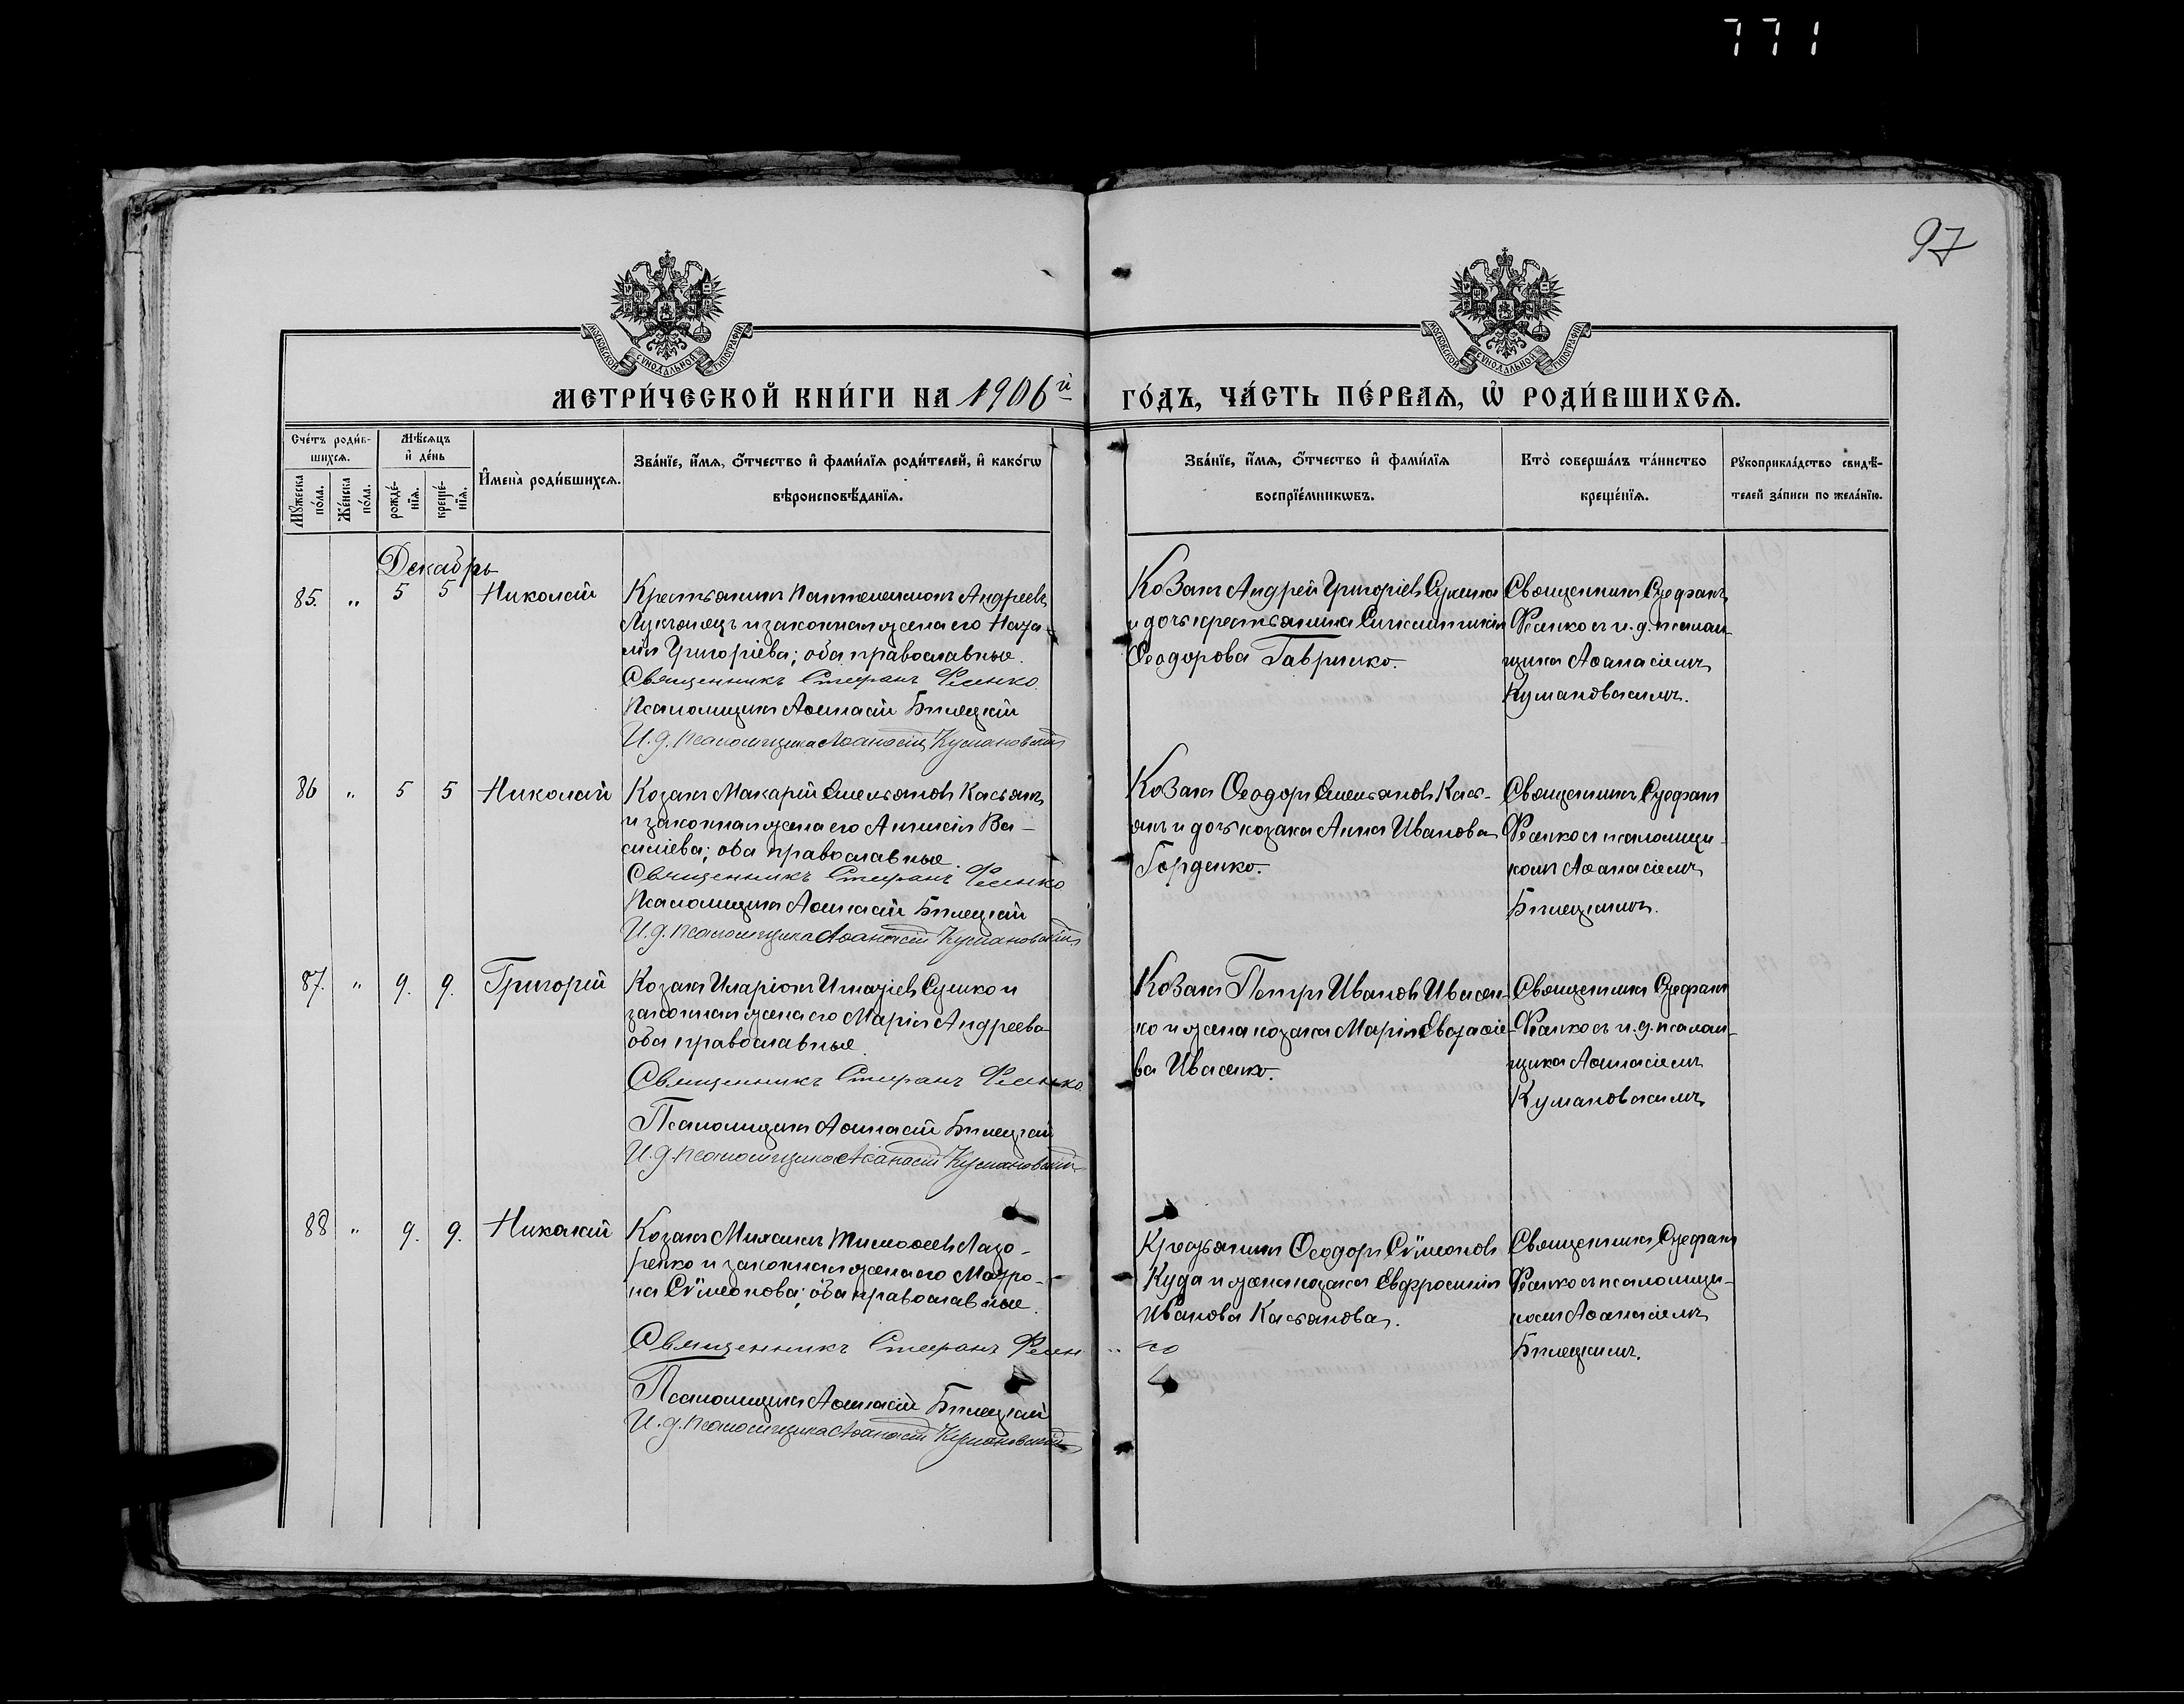 771
97
МОСКОВСКОЙ СУНОДАЛЬНОЙ ТИПОГРАФІИ
МОСКОВСКОЙ СУНОДАЛЬНОЙ ТИПОГРАФІИ
МЕТРИ́ЧЕСКОЙ КНИ́ГИ НА 1906й
ГО́ДЪ, ЧА́СТЬ ПЕ́РВАѦ, Ѽ РОДИ́ВШИХСѦ.
Сче́тъ роди́в-
шихсѧ.
Мꙋ́жеска
по́ла.
Же́нска
по́ла.
Мѣ́сѧцъ
и҆ де́нь
рожде́-
нїѧ.
креще́-
нїѧ.
И҆мена̀ роди́вшихсѧ.
Зва́нїе, и҆́мѧ, ѻ҆́тчество и҆ фами́лїѧ роди́телей, и҆ како́гѡ
вѣроисповѣ́данїѧ.
Зва́нїе, и҆́мѧ, ѻ҆́тчество и҆ фами́лїѧ
воспрїе́мникѡвъ.
Кто̀ соверша́лъ та́инство
креще́нїѧ.
Рꙋкоприкла́дство свидѣ́-
телей за́писи по жела́нїю.
Декабрь
85. " 5 5 Николай
Крестьянинъ Пантелеимонъ Андреевъ
и законная жена его Ната-
лія Григоріева; оба православные.
Священникъ Стефанъ
Псаломщикъ Аѳанасій Билецкій
И. д. псаломщика Аѳанасій Кумановскій
Козакъ Андрей Григоріевъ
и дочь крестьянина
Ѳеодорова Гавришко.
Священникъ Стефанъ
съ и. д. псалом-
щика Аѳанасіемъ
Кумановскимъ.
86 " 5 5 Николай
Козакъ Макарій Емельяновъ Касьянъ
и законная жена его Анисія Ва-
силіева; оба православные.
Священникъ Стефанъ
Псаломщикъ Аѳанасій Билецкій
И. д. псаломщика Аѳанасій Кумановскій
Козакъ Ѳеодоръ Емельяновъ Кась-
янъ и дочь козака Анна Иванова
Горденко.
Священникъ Стефанъ
съ псаломщи-
комъ Аѳанасіемъ
Билецкимъ.
87. " 9. 9. Григорій
Козакъ Иларіонъ Игнатіевъ Сушко и
законная жена его Марія Андреева
оба православные
Священникъ Стефанъ
Псаломщикъ Аѳанасій Билецкій
И. д. псаломщика Аѳанасій Кумановскій
Козакъ Петръ Ивановъ Ивасен-
ко и жена козака Марія
ва Ивасенко.
Священникъ Стефанъ
съ и. д. псалом-
щика Аѳанасіемъ
Кумановскимъ
88 " 9. 9. Николай
Козакъ Михаилъ Тимоѳеевъ Лазо-
ренко и законная жена его Матро-
на Сѵмеонова; оба православные.
Священникъ Стефанъ
Псаломщикъ Аѳанасій Билецкій
И. д. псаломщика Аѳанасій Кумановскій
Крестьянинъ Ѳеодоръ Сѵмеоновъ
Куда и жена козака Евфросинія
Иванова Касьянова.
Священникъ Стефанъ
съ псаломщи-
комъ Аѳанасіемъ
Билецкимъ.